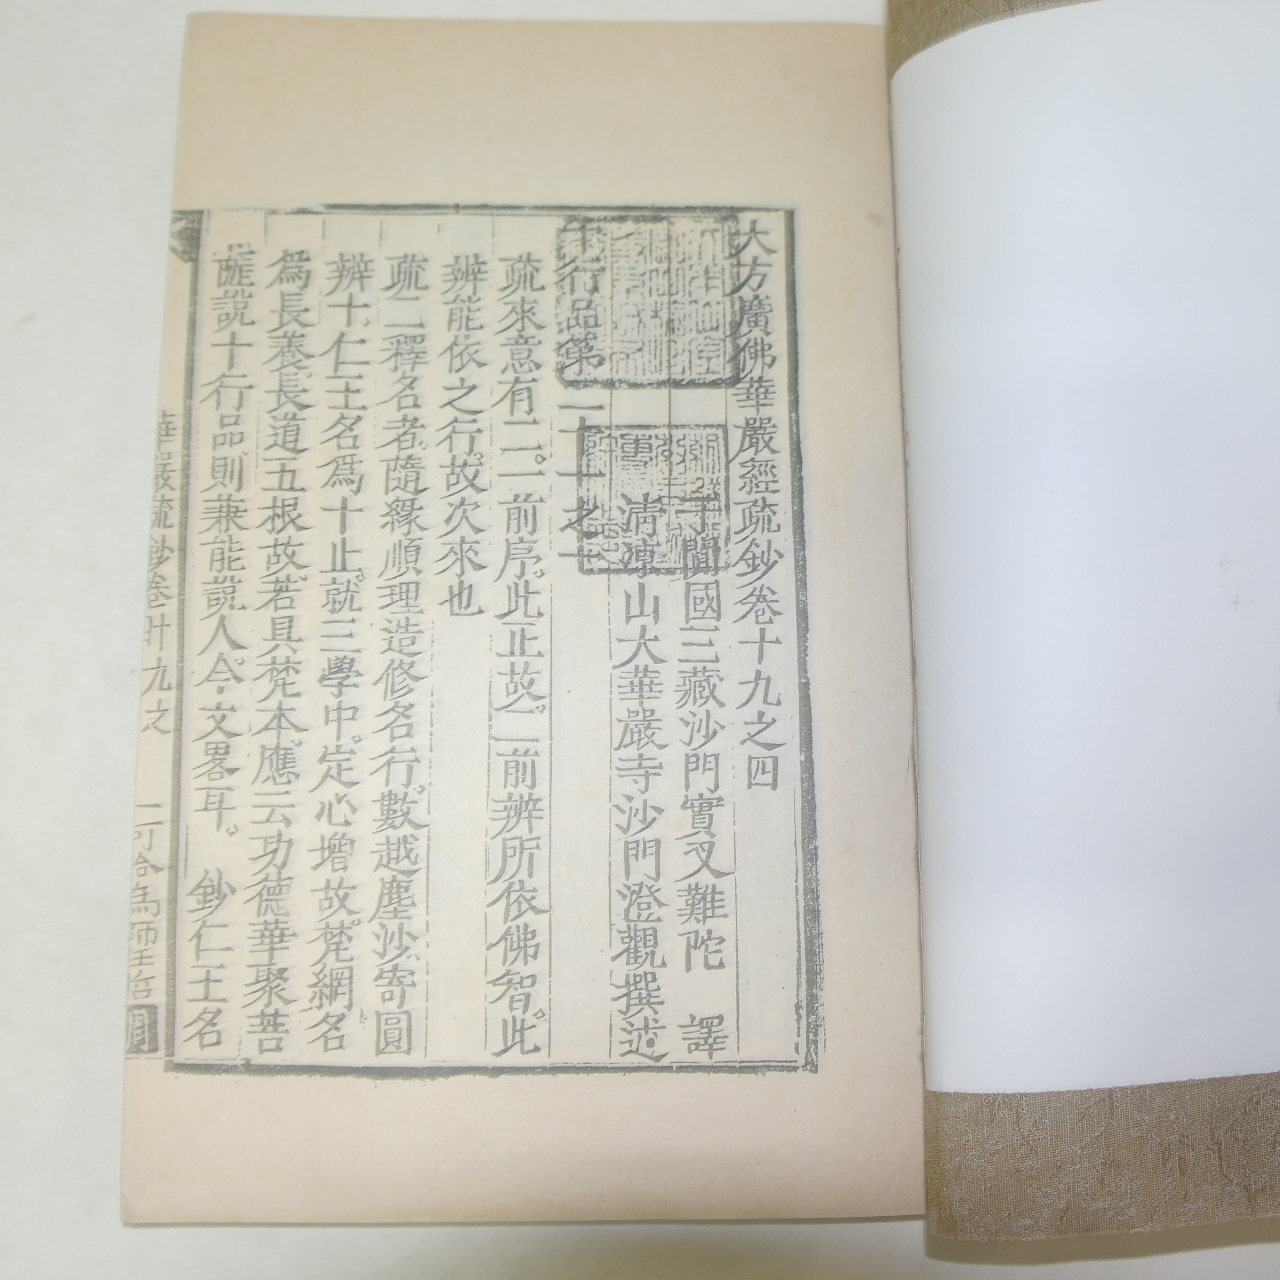 大方廣佛華嚴經疏鈔卷十九之四
于闐國三藏沙門實叉難陀 譯
清涼山大華嚴寺沙門澄觀撰述
十行品第二十一之一
疏來意有二。一前序。此正故。二前辨所依佛智。此
辨能依之行。故次來也
疏二釋名者。隨緣順理造修名行。數越塵沙。寄圓
辨十。仁王名爲十止。就三學中。定心增故。梵網名
爲長養。長道五根故。若具梵本。應云功德華聚菩
薩說十行品。則兼能說人。今文畧耳。 鈔仁王名
華嚴疏鈔卷廿九之